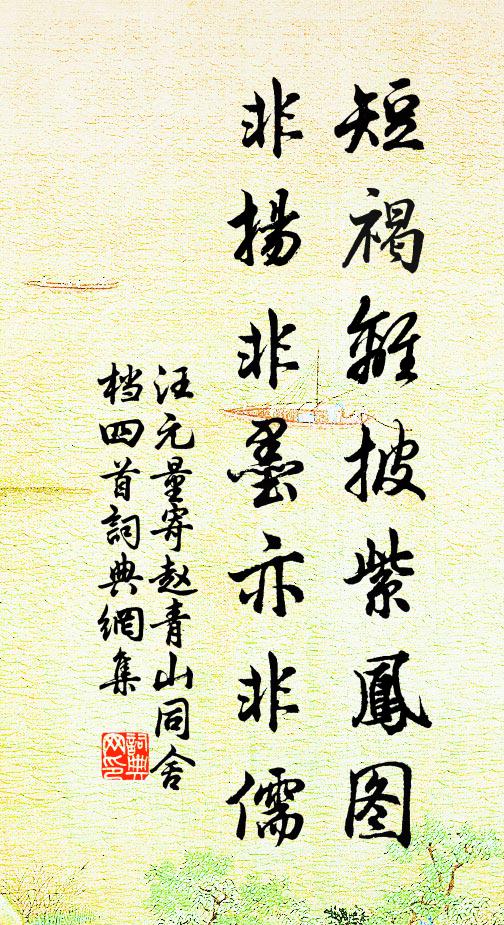 短褐離披紫鳳图
非揚非墨亦非儒
汪元量寄赵青山同舍
档四首詞典網集
詞典网印